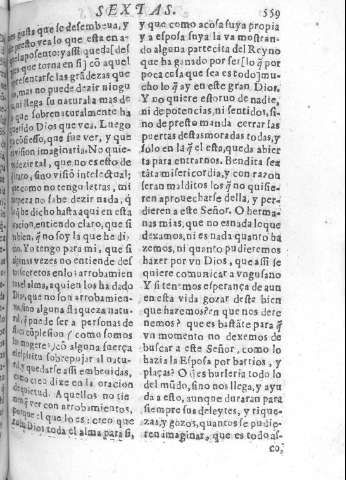 SEXTAS. 559
gusta que se desembeua, y
presto vea lo que esta en a-
aposento: y assi queda des
que torna en si cõ aquel
representarse las grãdezas que
mas no puede dezir ningu
ni llega su natural a mas de
que sobrenaturalmente ha
querido Dios que vea. Luego
cõfiesso, que fue ver, y que
vision imaginaria. No quie-
dezir tal, que no es esto de
trato, sino visiõ intelectual;
que como no tengo letras, mi
torpeza no sabe dezir nada, q̃
lo q̃ he dicho hasta aqui en esta
oracion, entiendo claro, que si
bien, q̃ no soy la que he di-
cho. Yo tengo para mi, que si
algunas vezes no entiende des
secretos en los arrobamien
el alma, aquien los ha dado
Dios, que no son arrobamien-
sino alguna flaqueza natu-
q̃ puede ser a personas de
flaca cõplesion (como somos
las mugeres) cõ alguna fuerça
el espiritu sobrepujar al natu-
ral, y quedarse assi embeuidas,
como creo dixe en la oracion
de quietud. A aquellos no tie
nen q̃ ver con arrobamientos,
porque el que lo es: creo que
roba Dios toda el alma para si,
y que como a cosa suya propia
y a esposa suya la va mostran-
do alguna partecita del Reyno
que ha ganado por ser [lo q̃ por
poca cosa que sea es todo] mu-
cho lo q̃ ay en este gran Dios.
Y no quiere estoruo de nadie,
ni de potencias, ni sentidos, si-
no de presto manda cerrar las
puertas destas moradas todas, y
solo en la q̃ el esta, queda abier
ta para entrarnos. Bendita sea
tãta misericordia, y con razon
seran malditos los q̃ no quisie-
ren aprouecharse della, y per-
dieren a este Señor. O herma-
nas mias, que no es nada lo que
dexamos, ni es nada quanto ha
zemos, ni quanto pudieremos
hazer por vn Dios, que assi se
quiere comunicar a vn gusano
Y si tenemos esperança de aun
en esta vida gozar deste bien
que hazemos? en que nos dete
nemos? que es bastãte para q̃
vn momento no dexemos de
buscar a este Señor, como lo
hazia la Esposa por barrios, y
plaças? O q̃ es burleria todo lo
del mũdo, sino nos llega, y ayu
da a esto, aunque duraran para
siempre sus deleytes, y rique-
zas, y gozos, quantos se pudie-
ren imaginar, que es todo as-
co,